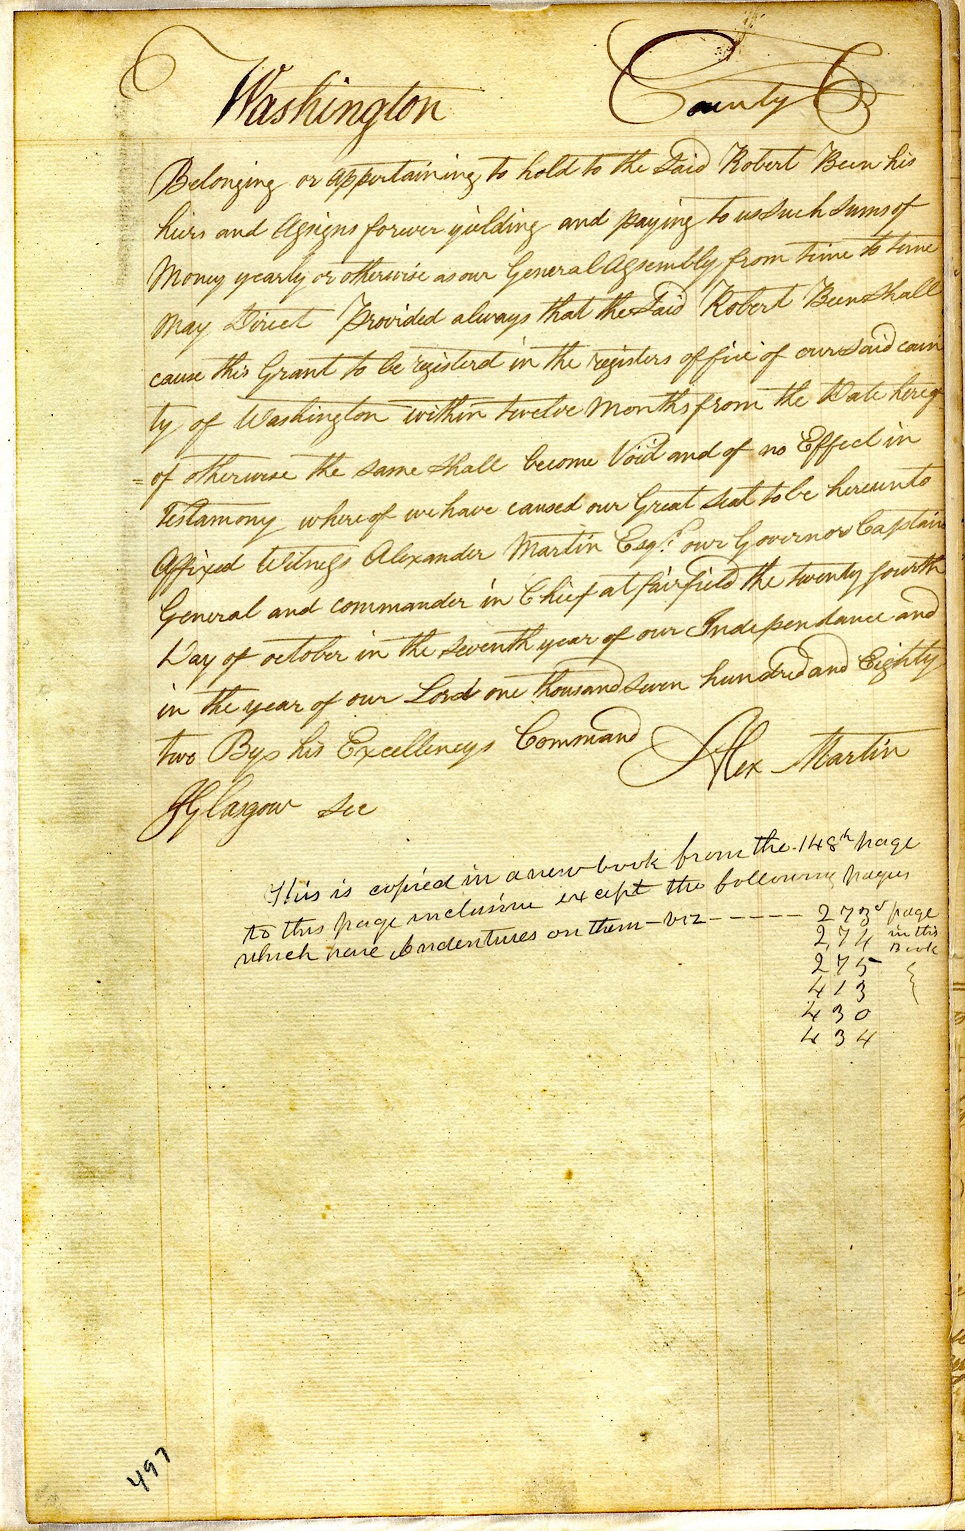 Washington County
Belonging or appertaining to hold to the Said Robert Been his
hiers and Assigns forever yielding and paying to us Such Sums of
Money yearly or otherwise as our General Assembly from time to time
may Direct Provided always that the Said Robert Been Shall
cause this Grant to be registerd in the registers office of our said coun
ty of Washington within twelve Months from the Date hereof
=of otherwise the same shall become Void and of no Effect in
Testamony whereof we have caused our Great Seal to be hereunto
Affixed Witness Alexander Martin Esqr. our Governor Captain
General and commander in Chief at Fairfield the twenty fourth
Day of october in the seventh year of our Independance and
in the year of our Lord one thousand seven hundred and Eighty
two By his Excellencys Command Alex Martin
JGlasgow Sec
This is copied in a new book from the 148th page
to this page inclusive except the following pages
which have Indentures on them-viz------ 273d page
274 in this
Book
275
413
430
434
497